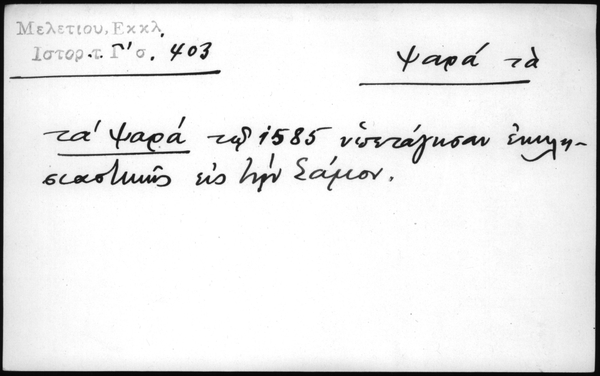 Μελετίου, Εκκλ.
Ιστορ. τ. Γ' σ. 403
Ψαρά τὰ
τα' Ψαρά τῷ 1585 ὑπετάγησαν ἐκκλη-
σιαστικῶς εἰς τὴν Σάμον.